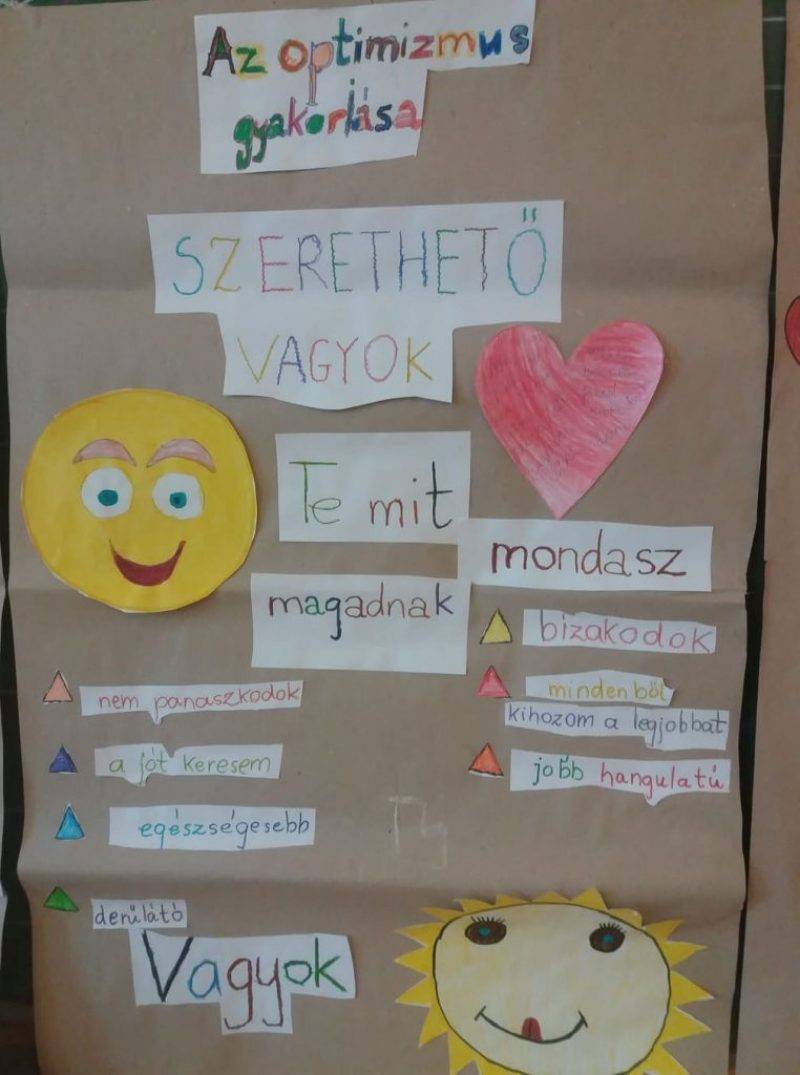 Az optimizmus
gyakorlása
SZERETHETŐ
VAGYOK
Te mit
mondasz
magadnak
nem panaszkodok
a jót keresem
egészségesebb
derűlátó
bizakodok
mindenből
kihozom a legjobbat
jobb hangulatú
Vagyok